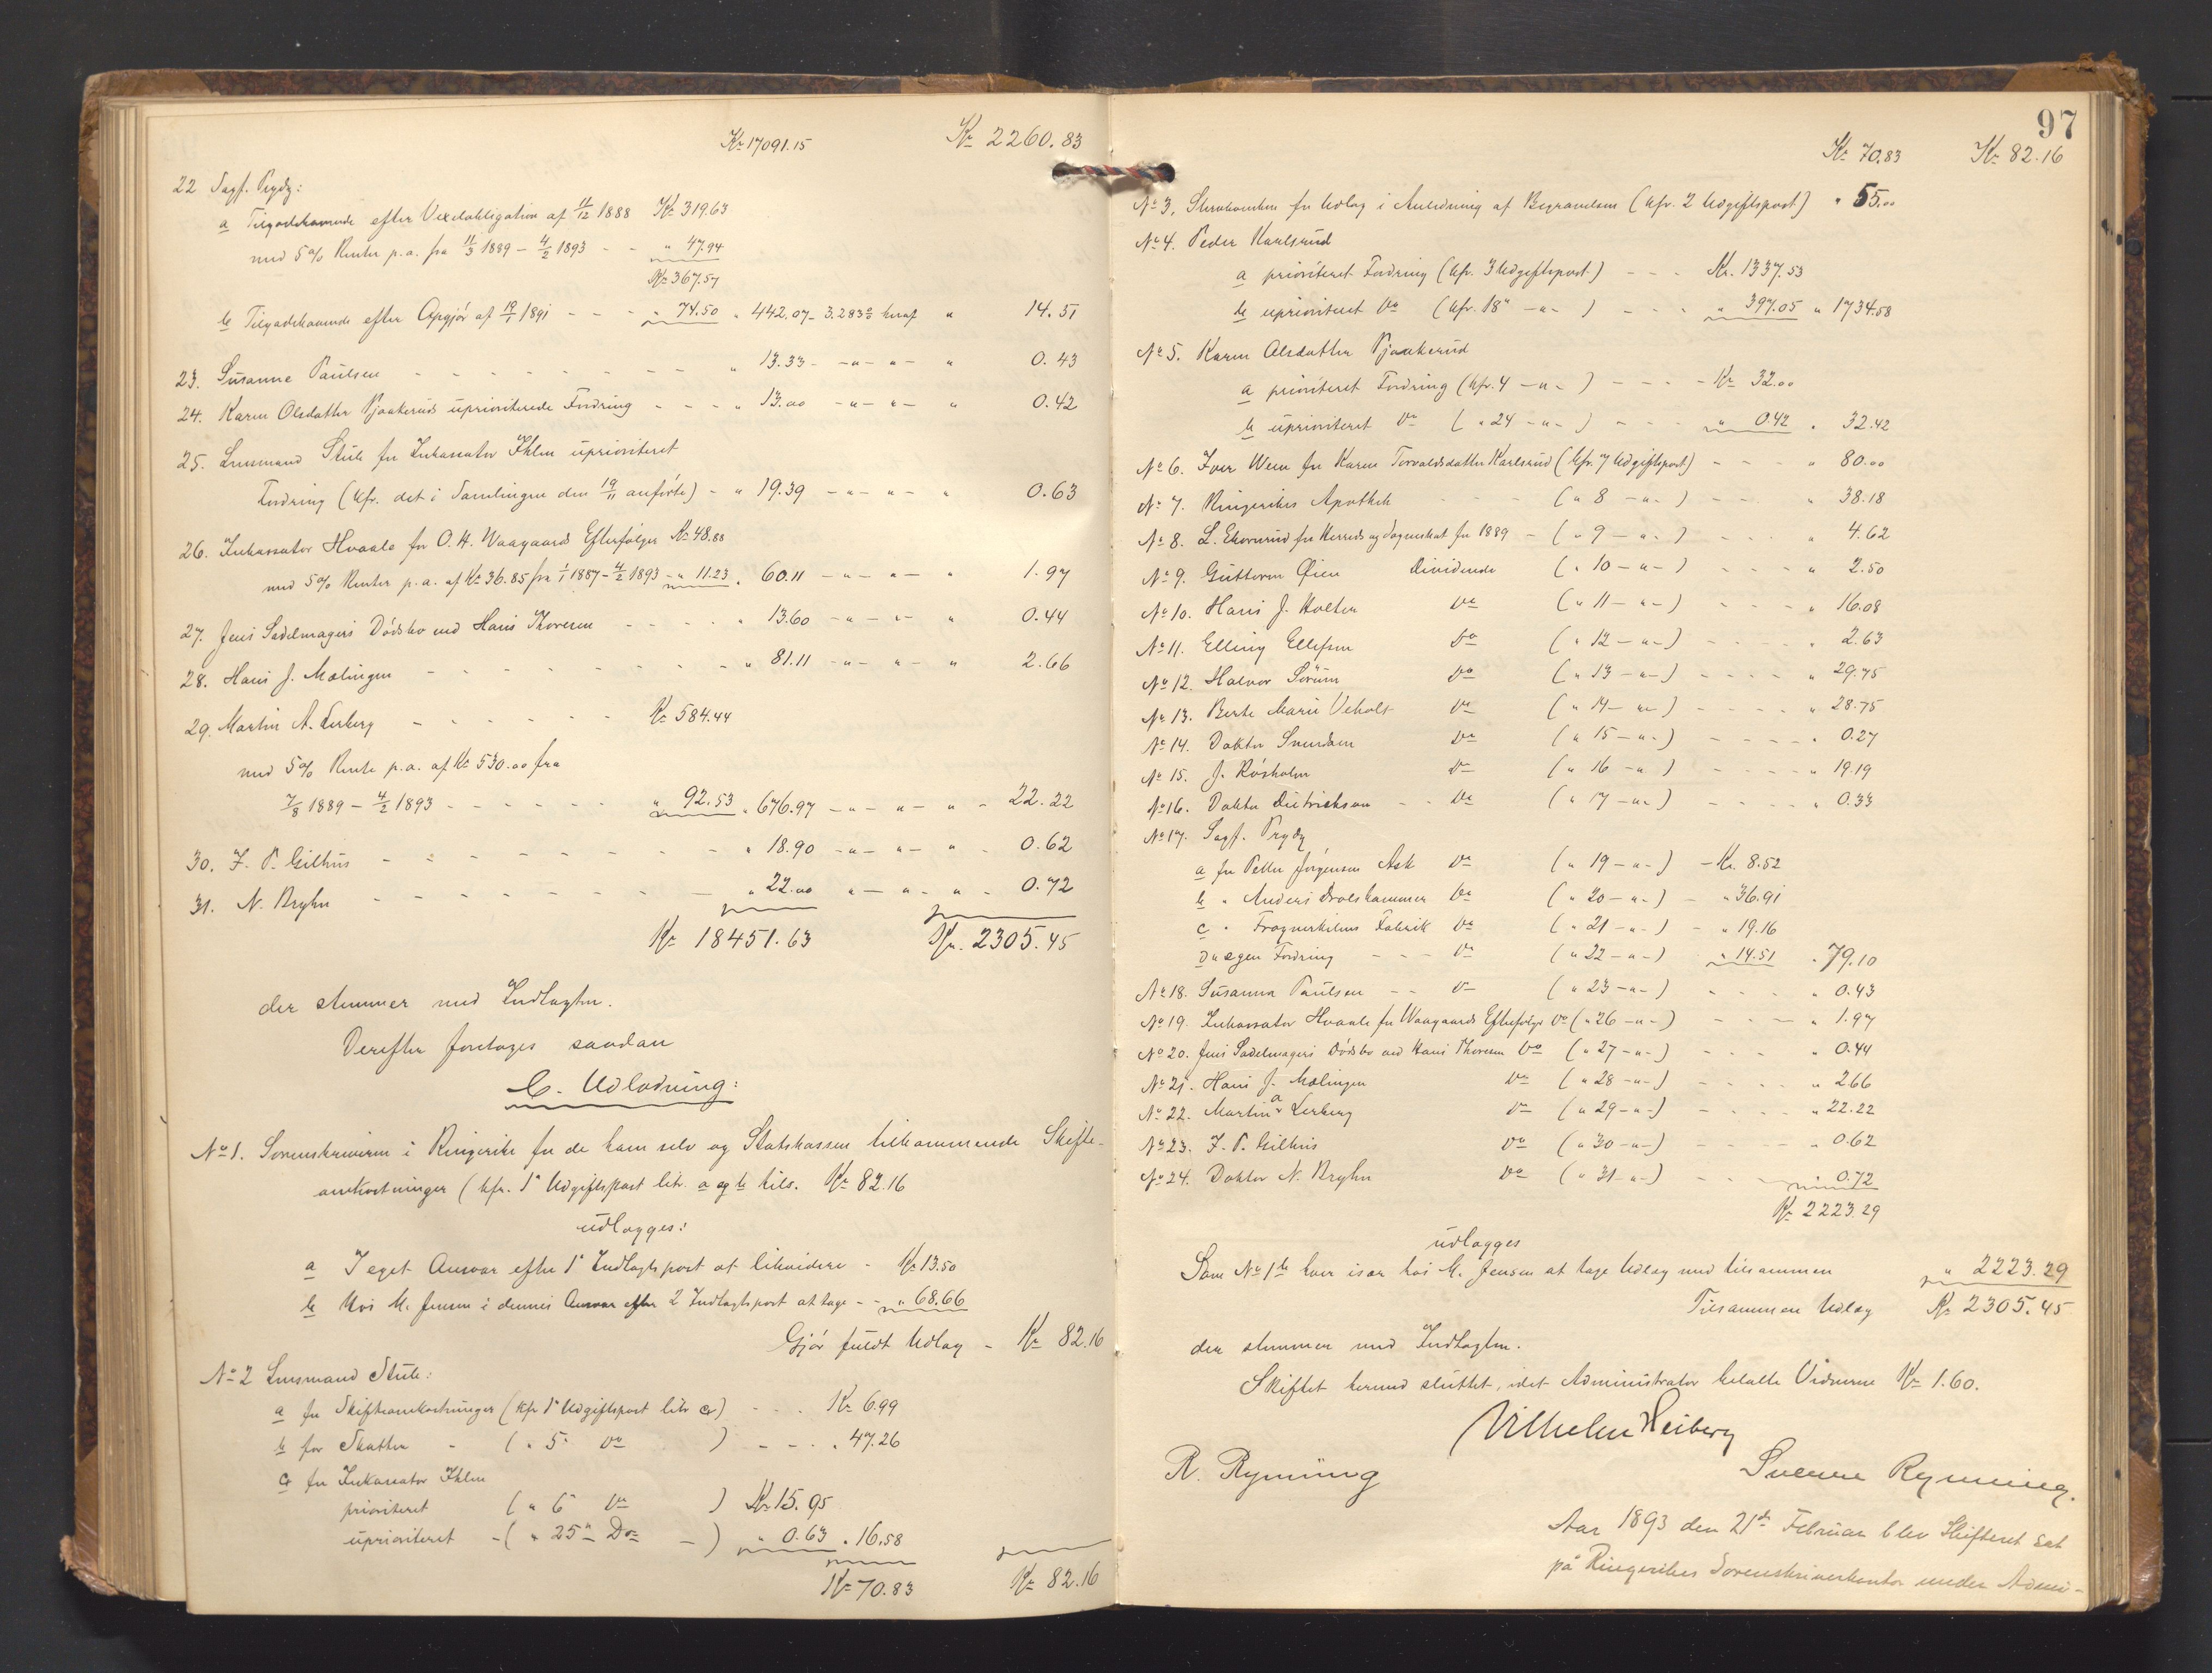 Kr 17091.15 Kr 2260.83
22 Sagf. Prydz:
a Tilgodehavende efter Vexelobligation af 11/12 1888 Kr 319.63
med 5 % Renter p.a. fra 11/3 1889 – 4/2 1893 - - " 47.94
Kr 367.57
b Tilgodehavende efter Opgjør af 19/1 1891 - - - " 74.50 " 442.07 - 3.283 % heraf " 14.51
23. Susanne Paulsen - - - - - - - " 13.33 - -"- "- " 0.43
24. Karen Olsdatter Pjaakeruds uprioriterede Fordring - - - " 13.00 -"- "- " 0.42
25. Lensmand Stub for Inkassator Ihlen uprioriteret
Fordring (kfr. det i Samlingen den 19/11 anførte) - " 19.39 -"- "- " 0.63
26. Inkassator Hvaale for O. H. Waagaards Efterfølger Kr 48.88
med 5 % Renter p.a. af Kr 36.85 fra 1/1 1887 - 4/2 1893 - " 11.23 " 60.11 -"- "- " 1.97
27. Jens Sadelmagers Dødsbo ved Hans Thoresen - - - - " 13.60 -"- "- " 0.44
28. Hans J. Mælingen - - - - - - - " 81.11 -"- "- " 2.66
29. Martin A. Lerberg - - - - - - Kr 584.44
med 5 % Rente p.a. af Kr 530.00 fra
7/8 1889 - 4/2 1893 - - - - - " 92.53 " 676.97 -"- "- " - 22.22
30. F. P. Gilhus - - - - - - - - " 18.90 -"- "- " - 0.62
31. N. Bryhn - - - - - - - - " 22.00 "- "- " - 0.72
Kr 18451.63 Kr. 2305.45
der stemmer med Indtægten.
Derefter foretoges saadan
C. Udlodning:
No 1. Sorenskriveren i Ringerike for de ham selv og Statskassen tilkommende Skifte-
omkostninger (kfr. 1ste Udgiftspost litr. a og b tils. Kr 82.16
udlægges:
a I eget Ansvar efter 1ste Indtægtspost at likvidere - Kr 13.50
b Hos M. Jensen i dennes Ansvar efter 2 Indtægtspost at tage - - " 68.66
Gjør fuldt Udlæg - Kr 82.16
No 2 Lensmand Stub:
a for Skifteomkostninger (kfr 1ste Udgiftspost litr c) - - - Kr 6.99
b for Skatter - ( " 5te Do ) - - - " 47.26
c for Inkassator Ihlen
prioriteret ( " 6te Do ) Kr 15.95
uprioriteret - ( " 25de Do - ) " 0.63 " 16.58
Kr 70.83 Kr 82.16
97
Kr 70.83 Kr 82.16
No 3, for Udlæg i Anledning af Begravelsen (kfr. 2 Udgiftspost) " 55.00
No 4. Peder Karlsrud
a prioriteret Fordring (kfr. 3 Udgiftspost) - - - Kr. 1337.53
b uprioriteret Do (kfr. 18de -"- ) - - - " 397.05 " 1734.58
No 5. Karen Olsdatter Pjaakerud
a prioriteret Fordring (kfr. 4 -"- ) - - - - Kr 32.00
b uprioriteret Do ( " 24 -"- ) - - - " 0.42 " 32.42
No 6. Iver Wem for Karen Torvaldsdatter Karlsrud (kfr. 7 Udgiftspost) - - - " 80.00
No 7. Ringerikes Apothek - - - ( " 8 -"- ) - - - " 38.18
No 8. L. Ekornrud for Herreds og Sogneskat for 1889 - ( " 9 -"- ) - - - " 4.62
No 9. Guttorm Øien Dividende ( " 10 -"- ) - - - " 2.50
No 10. Hans J. Holter Do ( " 11 -"- ) - - - " 16.08
No 11. Elling Ellefsen Do ( " 12 -"- ) - - - " 2.63
No 12. Halvor Sørum Do ( " 13 -"- ) - - - " 29.75
No 13. Berte Marie Veholt Do ( " 14 -"- ) - - - " 28.75
No 14. Doktor Do ( " 15 -"- ) - - - " 0.27
No 15. J. Røsholm Do ( " 16 -" ) - - - " 19.19
No 16. Doktor Dietrichson - - Do ( " 17 -"- ) - - - " 0.33
No 17. Sagf. Prydz
a for Petter Jørgensen Ask Do ( " 19 -"- ) - Kr. 8.52
b " Anders Drolshammer Do ( " 20 -"- ) - " 36.91
c " Fabrik Do ( " 21 -"- ) - " 19.16
d " egen Fordring - - - Do ( " 22 -"- ) " 14.51 " 79.10
No 18. Susanna Paulsen - - Do ( " 23 -"- ) - - - " 0.43
No 19. Inkassator Hvaale for Waagaards Efterfølger Do ( " 26 -"- ) - - - " 1.97
No 20. Jens Sadelmagers Dødsbo ved Hans Thoresen Do ( " 27 -"- ) - - - " 0.44
No 21. Hans J. Mælingen Do ( " 28 -"- ) - - - " 2.66
No 22. Martin A. Lerberg Do ( " 29 -"- ) - - - " 22.22
No 23. F. P. Gilhus Do ( " 30 -"- ) - - - " 0.62
No 24. Doktor N. Bryhn Do ( " 31 -"- ) - - - " 0.72
Kr 2223.29
udlægges
Som No 1 b hver især hos M. Jensen at tage Udlæg med tilsammen " 2223.29
Tilsammen Udlæg Kr 2305.45
der stemmer med Indtægten.
Skiftet hermed sluttet, idet Administrator betalte Vidnerne Kr 1.60.
Vilhelm Heiberg
R. Rynning Sverre Rynning.
Aar 1893 den 21de Februar blev Skifteret sat
på Ringerikes Sorenskriverkontor under Admi-